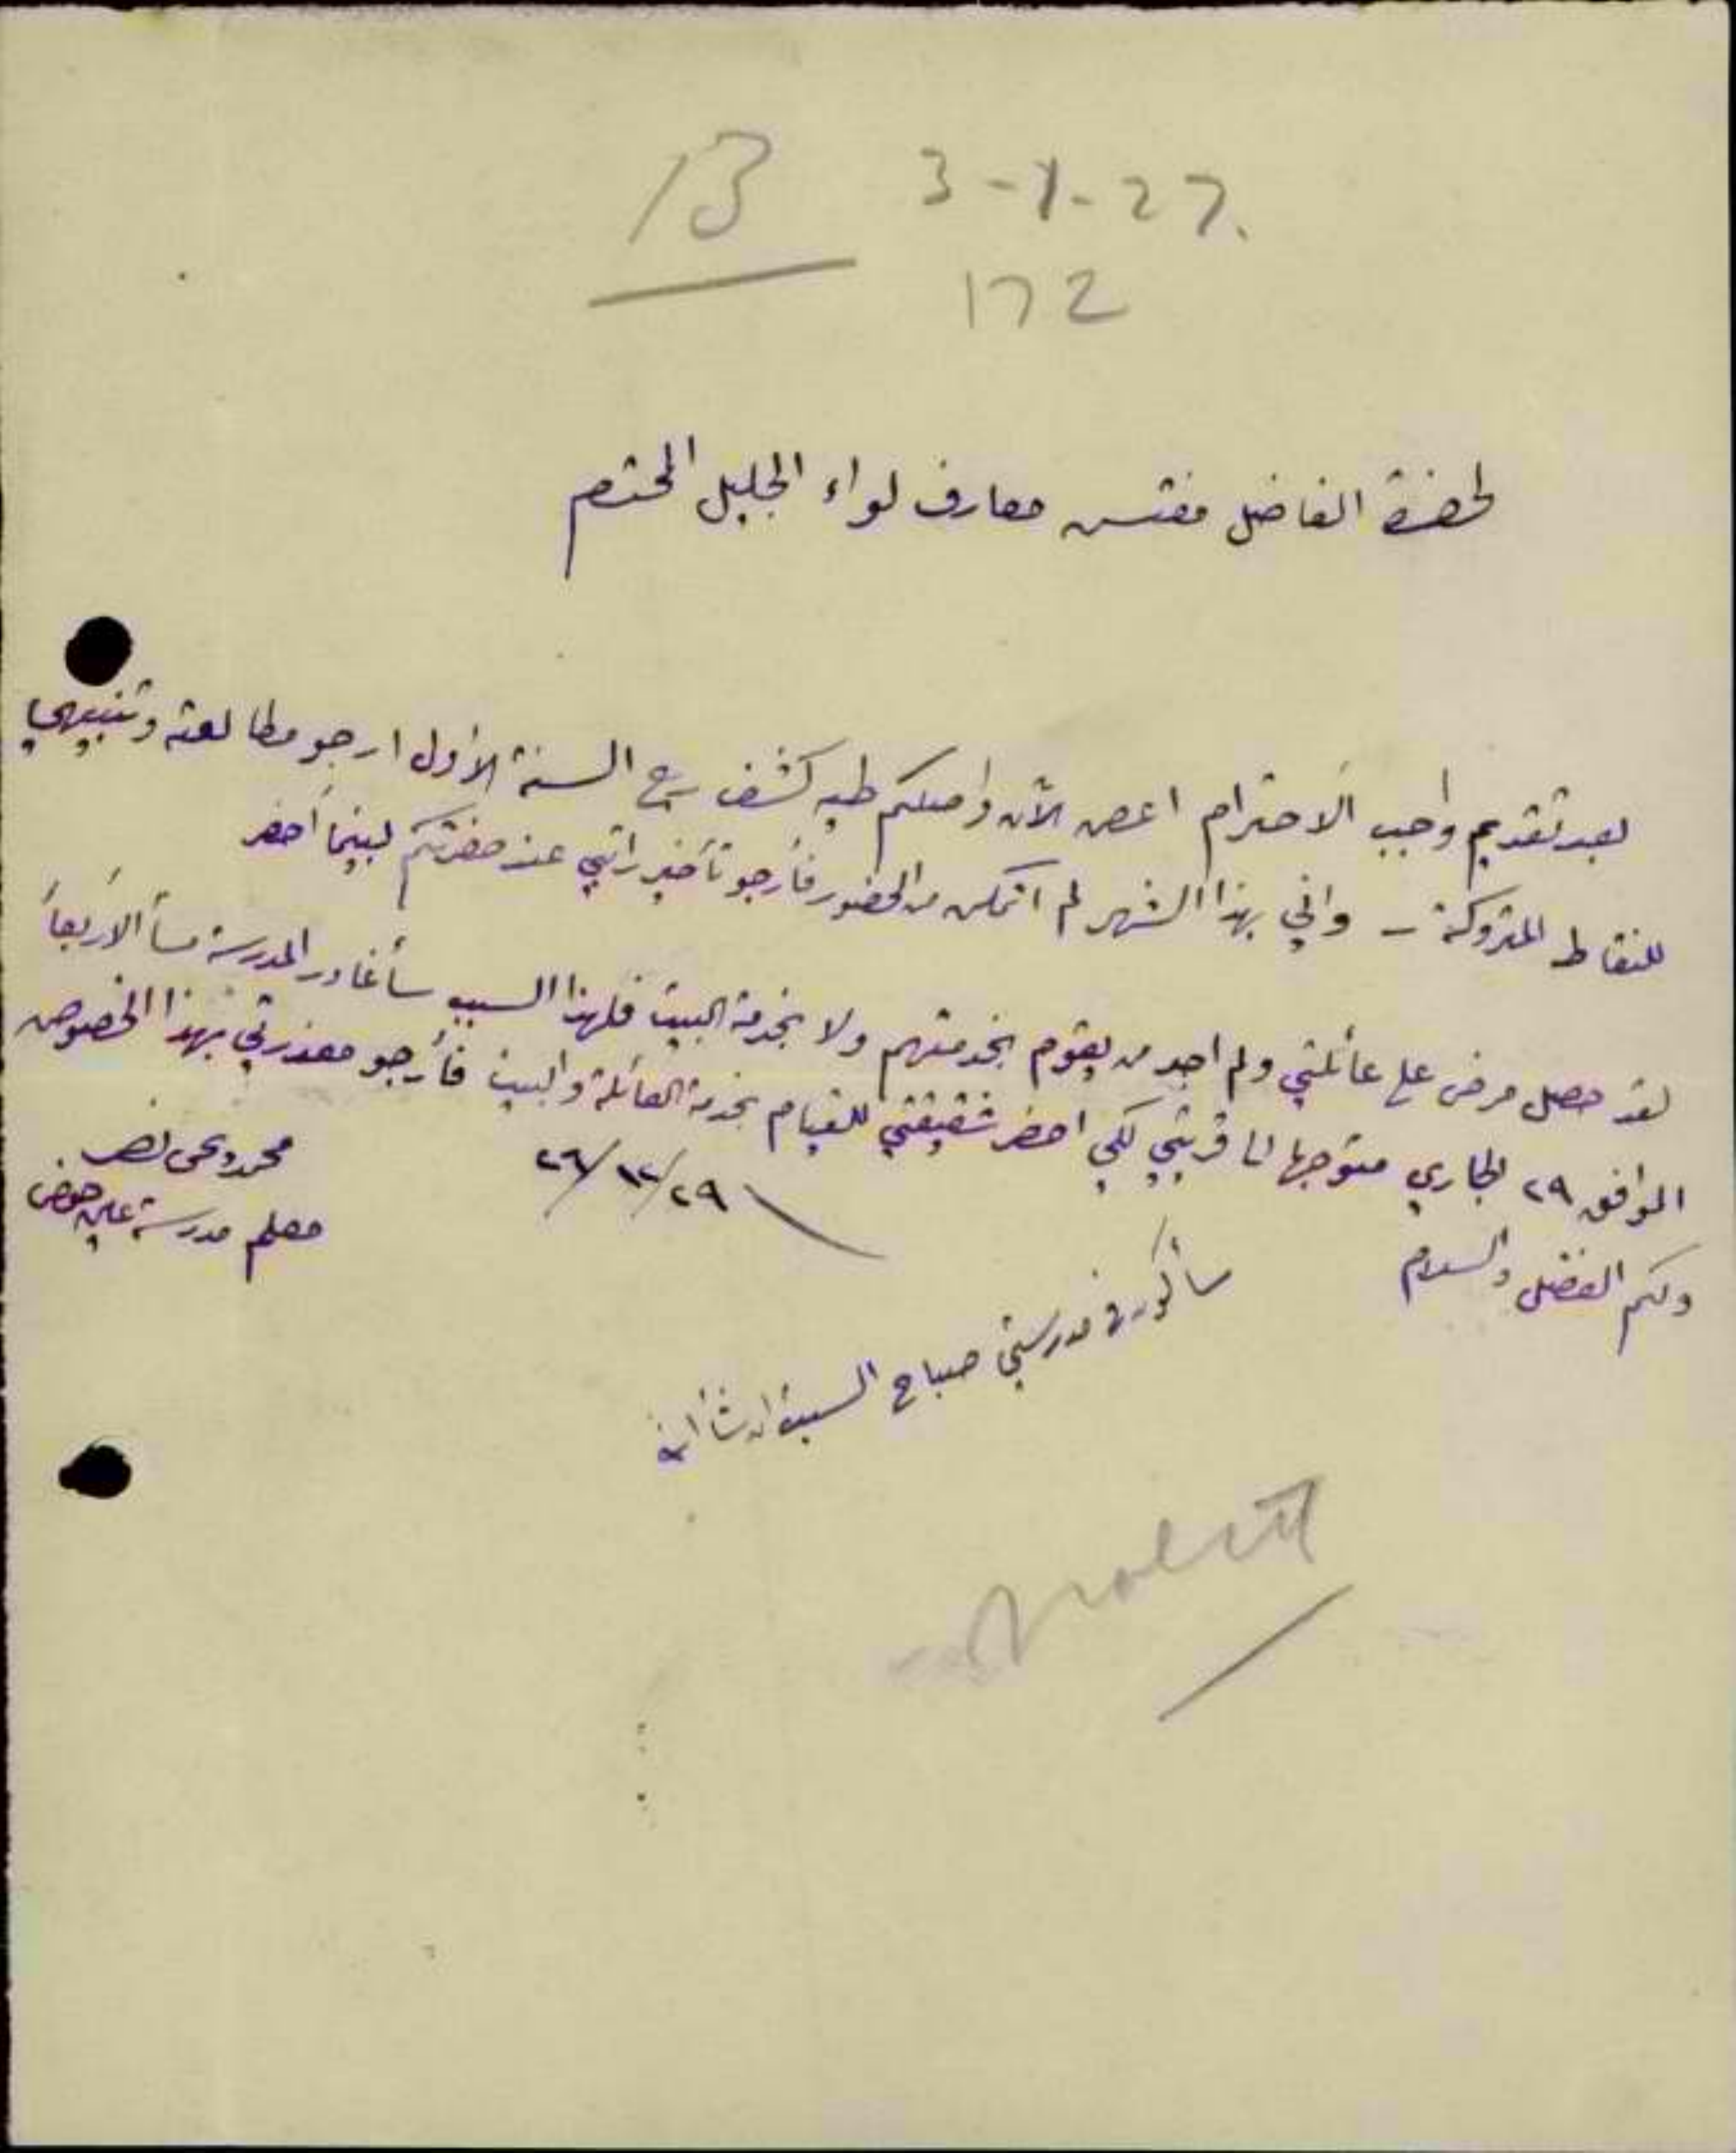 13 3-1-27.
172
لحضرة الفاضل مفتش معارف لواء الجليل المحترم
بعد تقديم واجب الاحترام اعرض الآن واصلكم طيه كشف ربع السنة الأول ارجو مطالعته وتنبيهي
للنقاط المتروكة - واني بهذا الشهر لم اتمكن من الحضور فأرجو تأخير راتبي عند حضرتكم لبينما أحضر
لقد حصل مرض على عائلتي ولم اجد من يقوم بخدمتهم ولا بخدمة البيت فلهذا السبب سأغادر المدرسة مسأ الأربعأ
الموافق ٢٩ الجاري متوجها لنا قريتي لكي احضر شقيقتي للقيام بخدمة العائلة والبيت فأرجو معذرتي بهذا الخصوص
ولكم الفضل والسلام
٢٩/١٢/٢٦
محمد يحي نصر
معلم مدرسة عين حوض
سأكون في مدرستي صباح السبت ان شأ الله